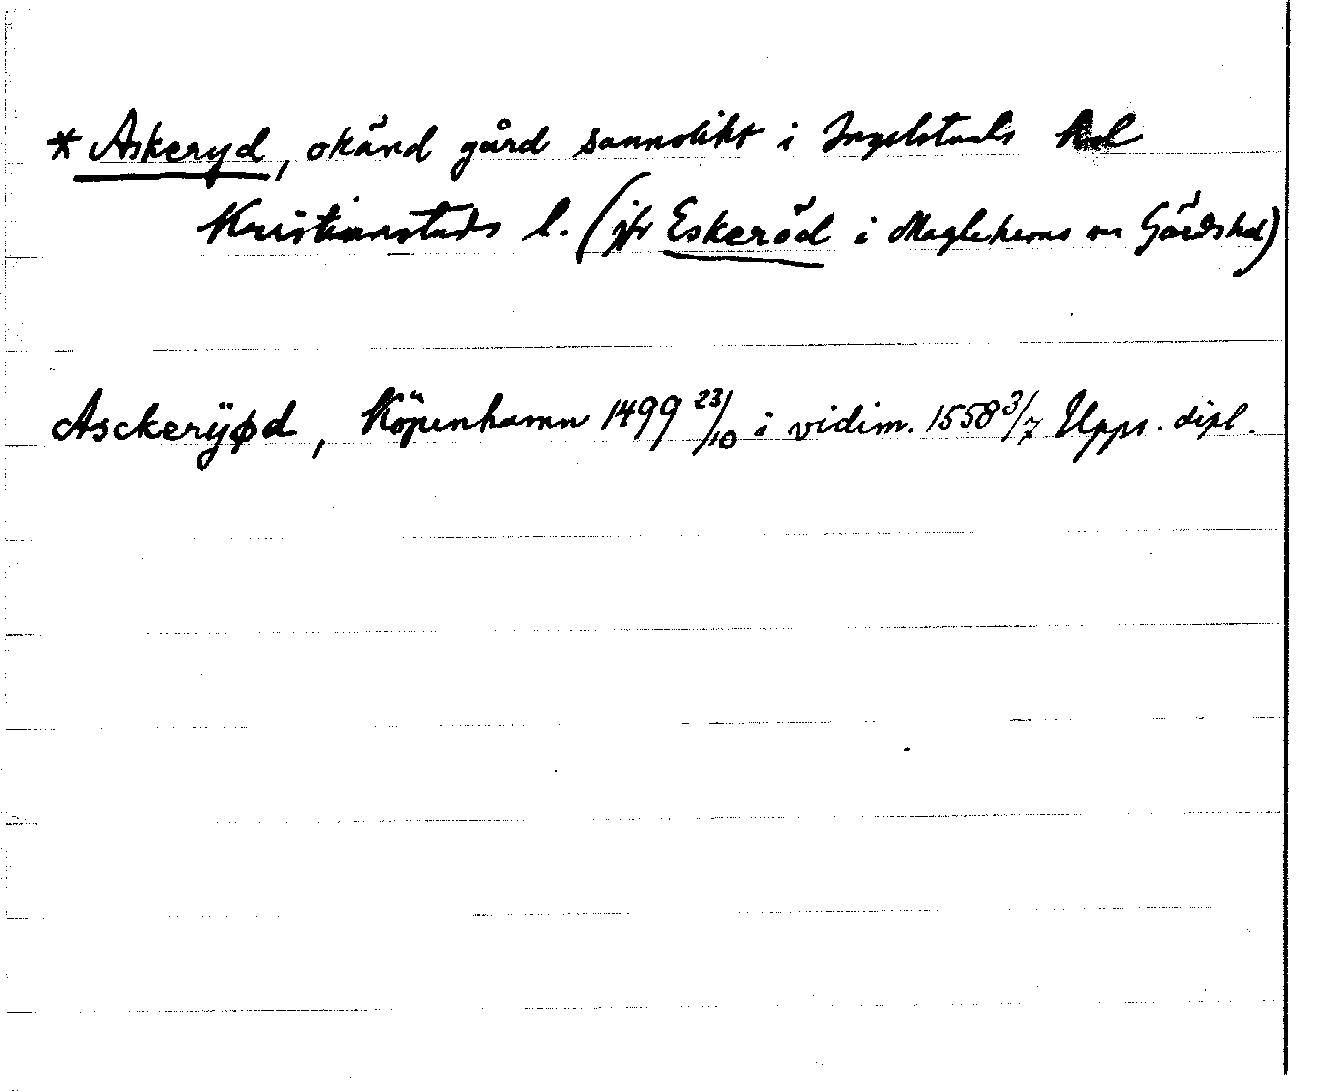 * Askeryd, okänd gård sannolikt i Ingelstads hd
Kristianstads l. (jfr Eskeröd i Maglehems sn Gärds hd)
Asckerÿød, Köpenhamn 1499 23/10 i vidim. 1558 3/7 Upps. dipl.